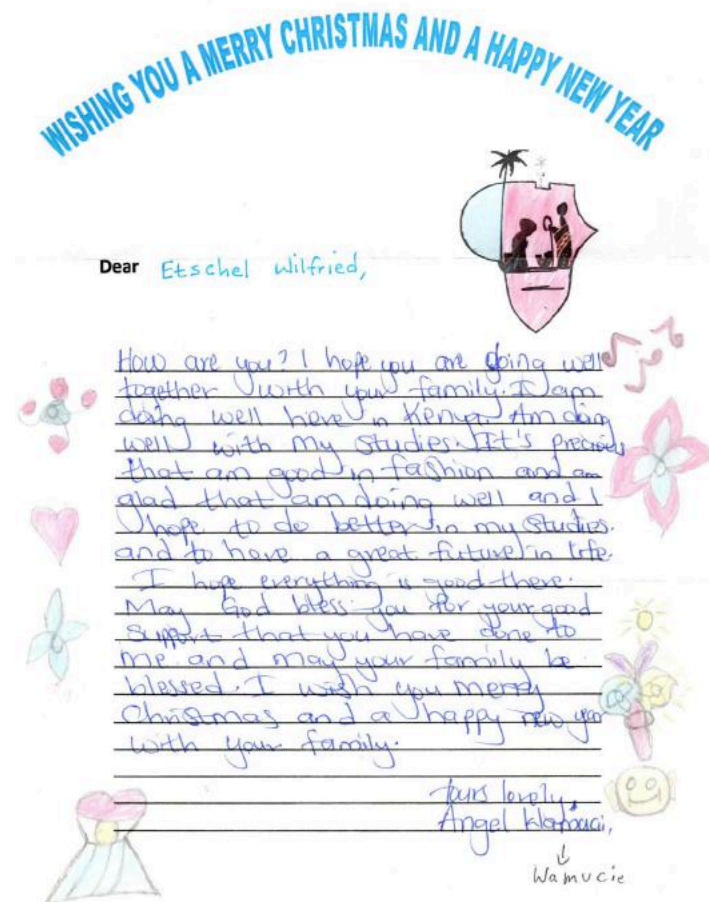 WISHING YOU A MERRY CHRISTMAS AND A HAPPY NEW YEAR
Dear Etschel Wilfried,
How are you? I hope you are doing well
together with your family. I am
doing well here in Kenya. Am doing
well with my studies. It's precious
that am good in fashion and am
glad that am doing well and I
hope to do better in my studies.
and to have a great future in life.
I hope everything is good there.
May God bless you for your good
support that you have done to
me and may your family be
blessed. I wish you merry
Christmas and a happy new year
with your family.
Yours lovely,
Angel
Wamucie